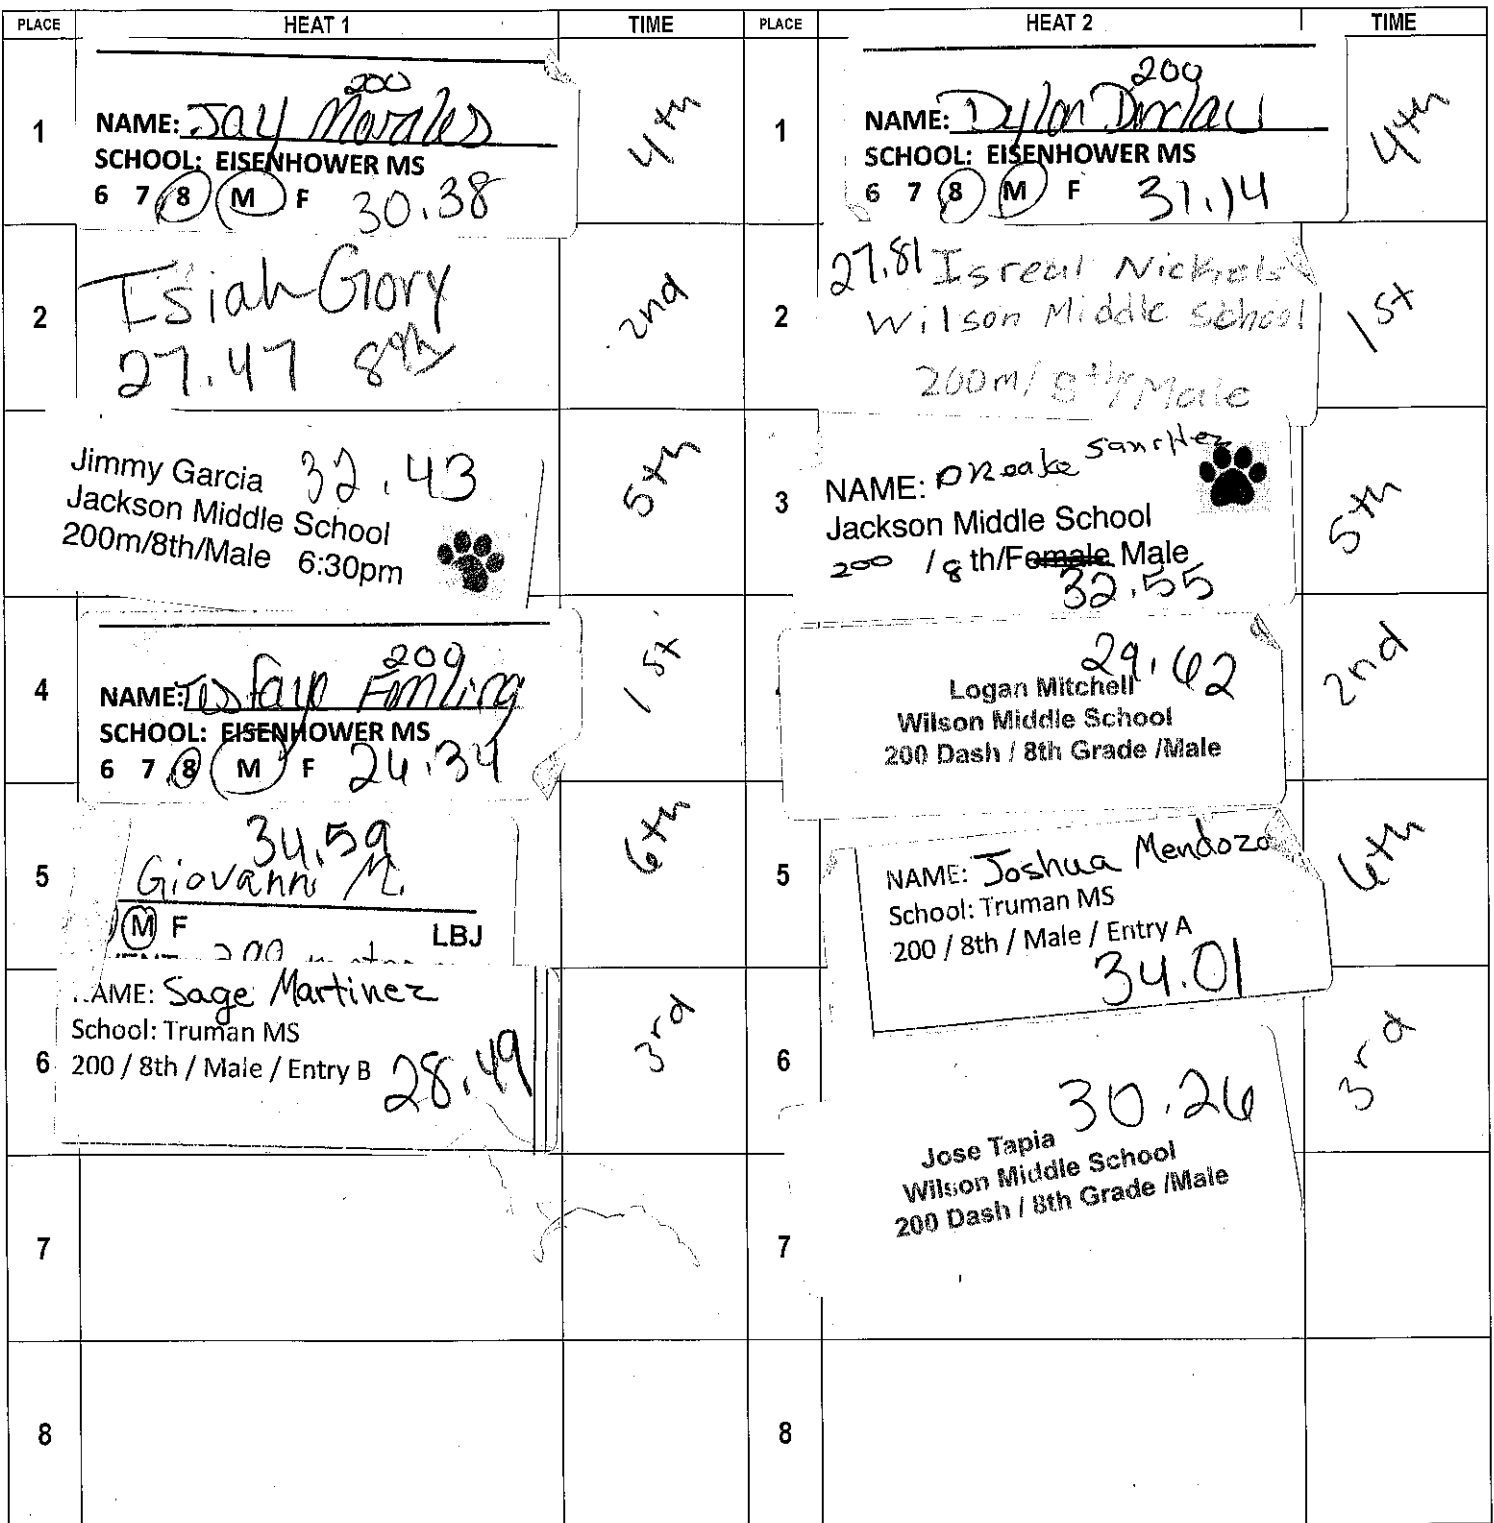 PLACE HEAT 1 TIME PLACE HEAT 2 TIME
1
200
NAME: Jay Morales
SCHOOL: EISENHOWER MS
6 7 8 M F 30.38
4th
1
200
NAME: Dylon
SCHOOL: EISENHOWER MS
6 7 8 M F 31.14
4th
2
Isiah Gory
27.47 8th
2nd
2
27.81 Isreal Nickels
Wilson Middle School
200m/8th/Male
1st
Jimmy Garcia 32.43
Jackson Middle School
200m/8th/Male 6:30pm
5th
3
NAME: DReake Sanchez
Jackson Middle School
200 / 8 th/Female Male
32.55
5th
4
200
NAME: Tesfaye
SCHOOL: EISENHOWER MS
6 7 8 M F 24.34
1st
29.62
Logan Mitchell
Wilson Middle School
200 Dash / 8th Grade /Male
2nd
5
34.59
Giovanni M.
M F LBJ
200
6th
5
NAME: Joshua Mendoza
School: Truman MS
200 / 8th / Male / Entry A
34.01
6th
6
NAME: Sage Martinez
School: Truman MS
200 / 8th / Male / Entry B 28.49
3rd
6
30.26
Jose Tapia
Wilson Middle School
200 Dash / 8th Grade /Male
3rd
7
7
8
8